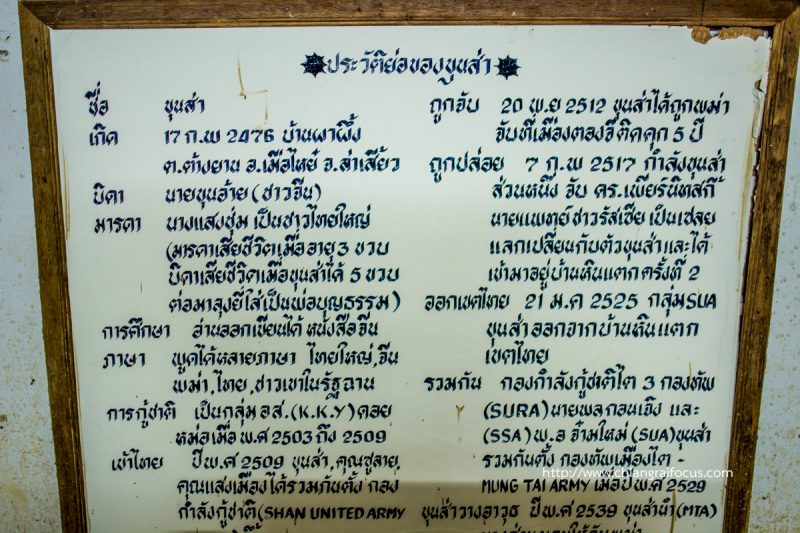 ประวัติย่อของขุนส่า
ชื่อ ขุนส่า
เกิด 17 ก.พ 2476 บ้านผาผึ้ง
ต.ต้างยาน อ.เมือไหย๋ จ.ล่าเสี้ยว
บิดา นายขุนอ้าย (ชาวจีน)
มารดา นางแสงชุ่ม เป็นชาวไทยใหญ่
(มารดาเสียชีวิตเมื่ออายุ 3 ขวบ
บิดาเสียชีวิตเมื่อขุนส่าได้ 5 ขวบ
ต่อมาลุงยี่ใส่เป็นพ่อบุญธรรม)
การศึกษา อ่านออกเขียนได้ หนังสือจีน
ภาษา พูดได้หลายภาษา ไทยใหญ่, จีน
พม่า, ไทย, ชาวเขาในรัฐฉาน
การกู้ชาติ เป็นกลุ่ม อส. (K.K.Y) ดอย
หม่อเมื่อ พ.ศ 2503 ถึง 2509
เข้าไทย ปี พ.ศ 2509 ขุนส่า, คุณซูลาย,
คุณแสงเมืองได้รวมกันตั้ง กอง
กำลังกู้ชาติ (SHAN UNITED ARMY
ถูกจับ 20 พ.ย 2512 ขุนส่าได้ถูกพม่า
จับที่เมืองตองจีติดคุก 5 ปี
ถูกปล่อย 7 ก.พ 2517 กำลังขุนส่า
ส่วนหนึ่ง จับ ดร.เพียร์นิทสกี้
นายแพทย์ชาวรัสเซีย เป็นเชลย
แลกเปลี่ยนกับตัวขุนส่าและได้
เข้ามาอยู่บ้านหินแตกครั้งที่ 2
ออกเขตไทย 21 ม.ค 2525 กลุ่ม SUA
ขุนส่าออกจากบ้านหินแตก
เขตไทย
รวมกัน กองกำลังกู้ชาติไต 3 กองทัพ
(SURA) นายพลกอนเจิง และ
(SSA) พ.อ จ๋ามใหม่ (SUA) ขุนส่า
รวมกันตั้ง กองทัพเมืองไต -
MUNG TAI ARMY เมื่อปี พ.ศ 2529
ขุนส่าวางอาวุธ ปี พ.ศ 2539 ขุนส่านำ (MTA)
http://www.chiangraifocus.com